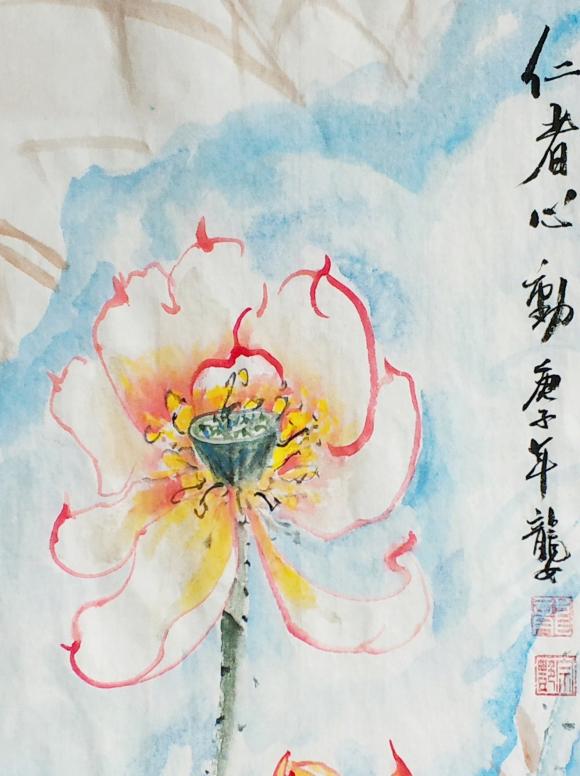 仁者心動庚子年龔女